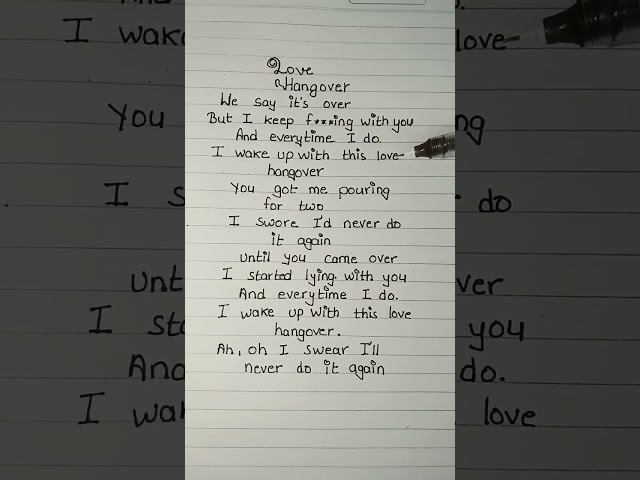 Love
Hangover
We say it's over
But I keep f***ing with you
And everytime I do.
I wake up with this love
hangover
You got me pouring
for two
I swore I'd never do
it again
until you came over
I started lying with you
And everytime I do.
I wake up with this love
hangover.
Ah, oh I swear I'll
never do it again